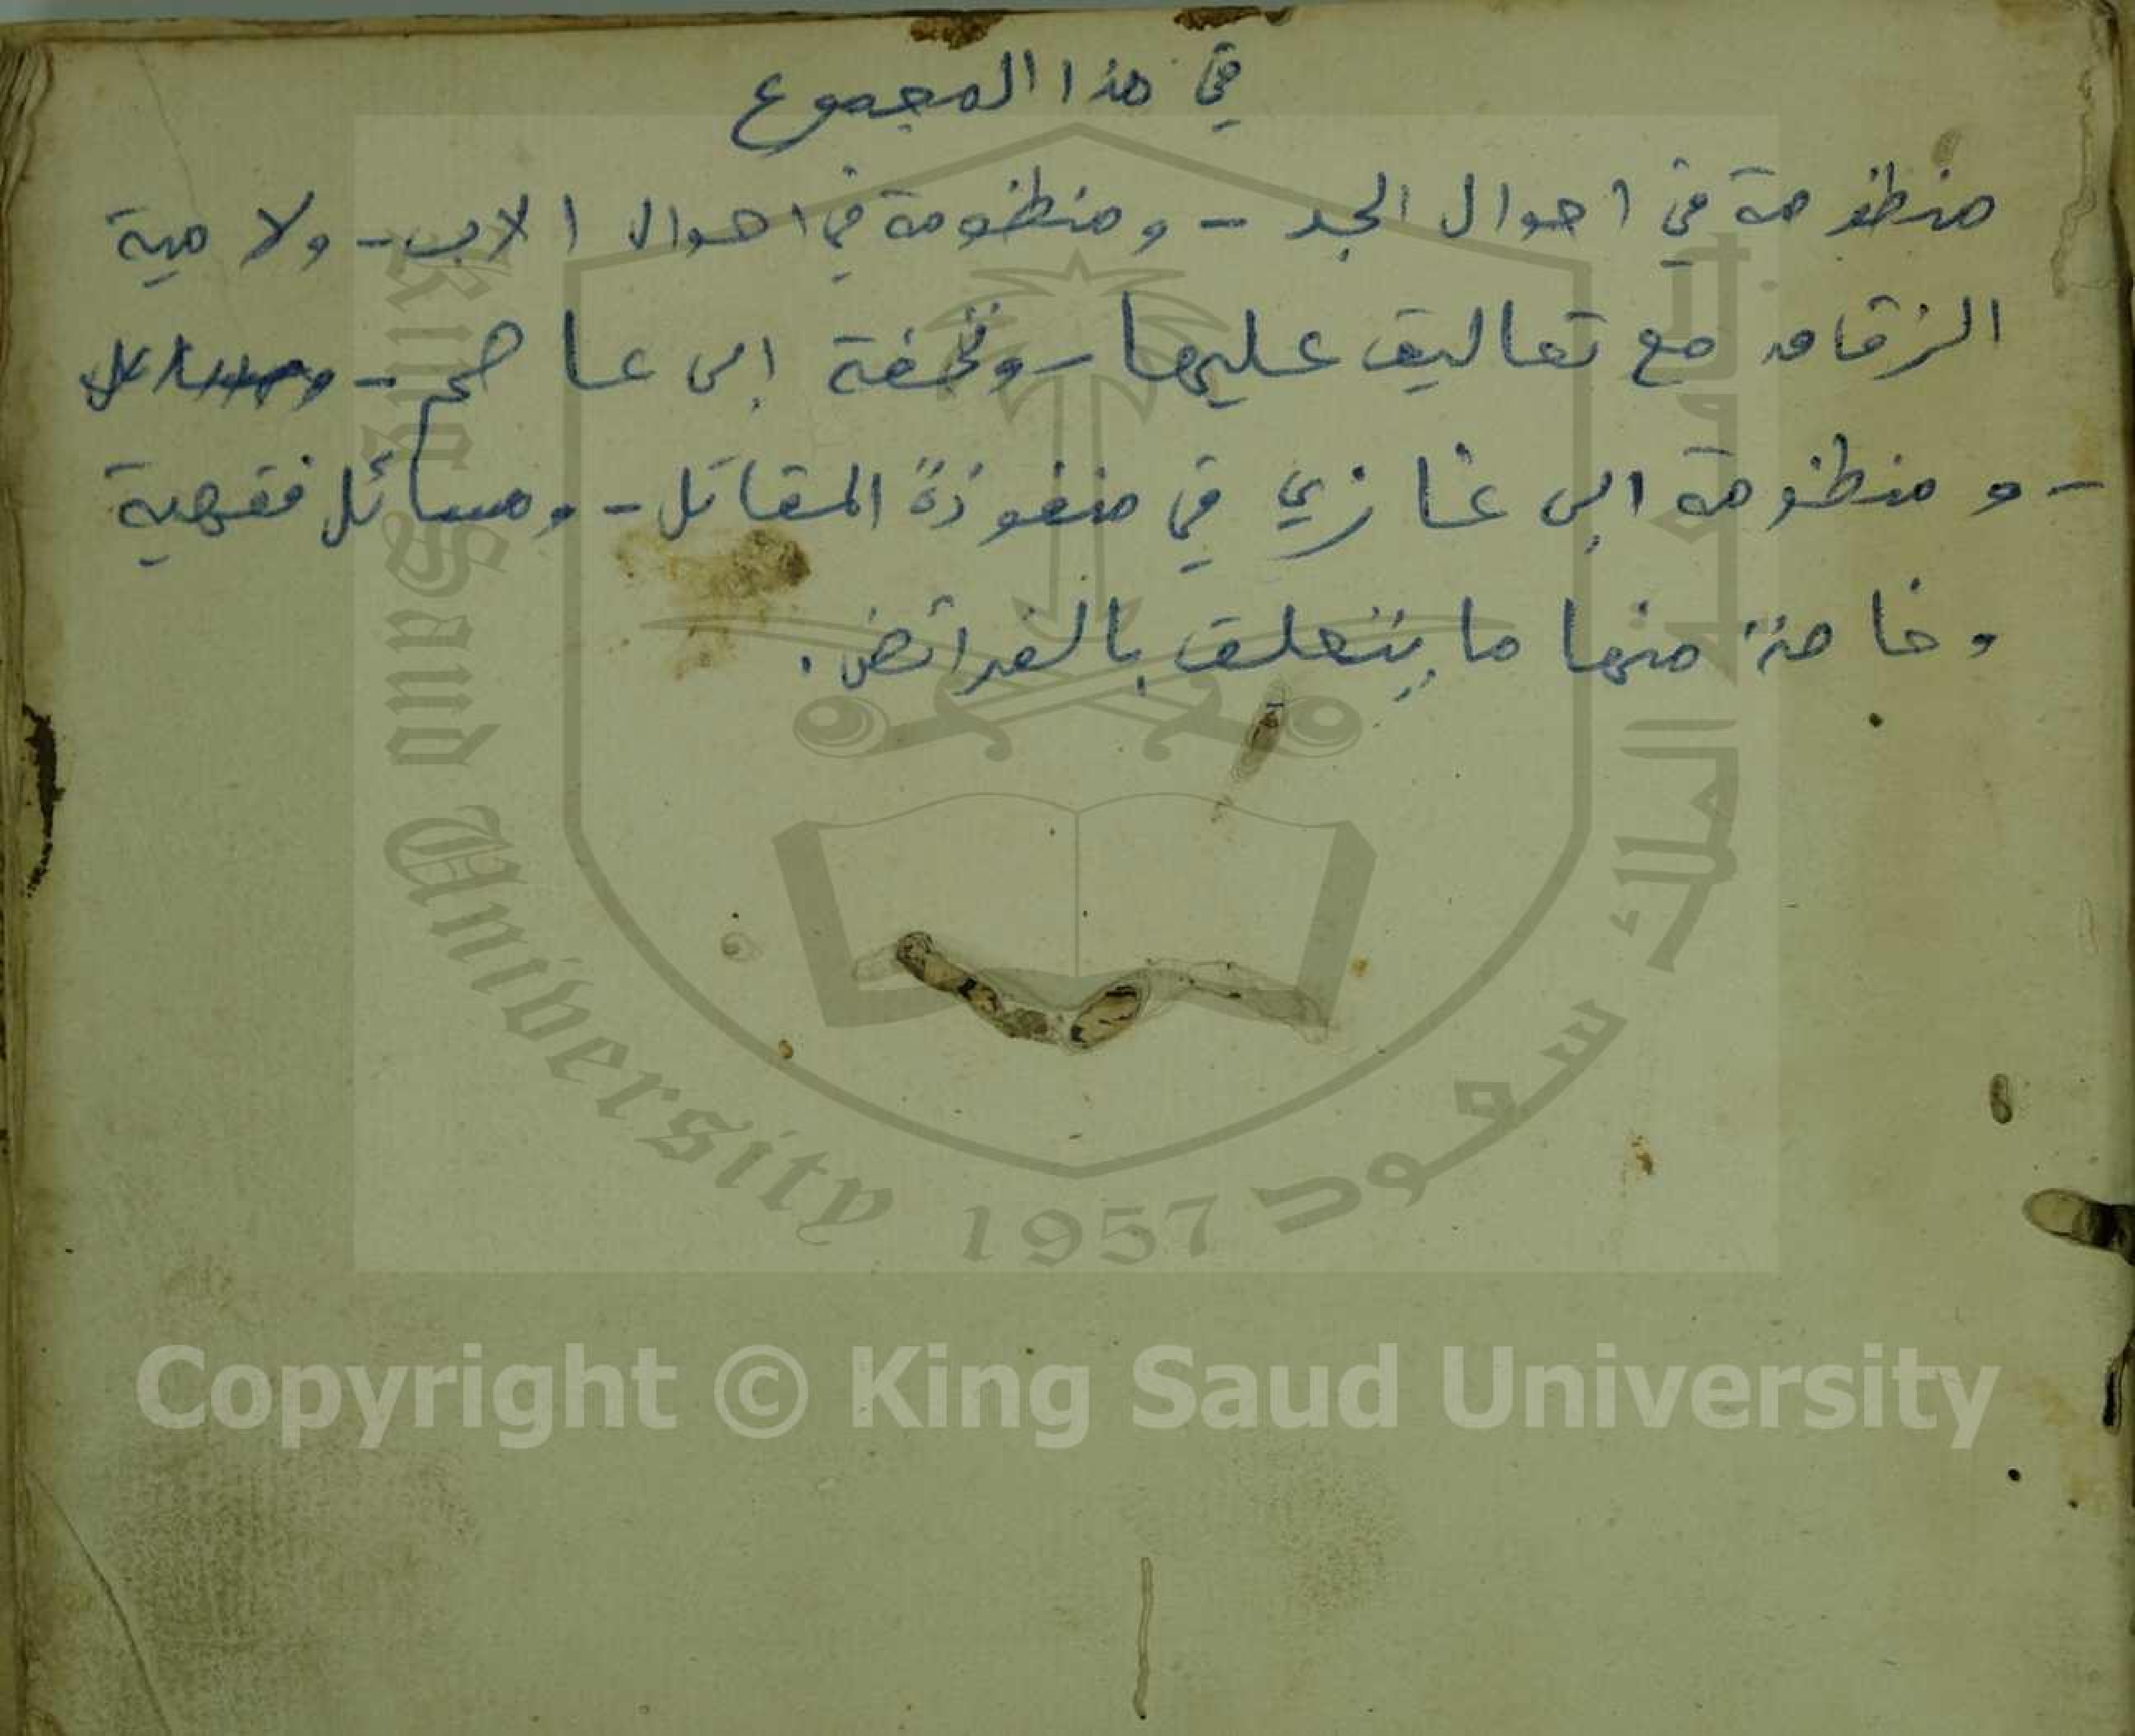 في هذا المجموع
منظومة في احوال الجد - ومنظومة في احوال الاب - ولا مية
الزقاق مع تعاليق عليها - وتحفة ابن عاصم - ومسائل
- و منظومة ابن غازي في منفوذة المقاتل - ومسائل فقهية
وخاصة منها ما يتعلق بالفرائض .
King Saud University 1957 جامعة الملك سعود
Copyright © King Saud University